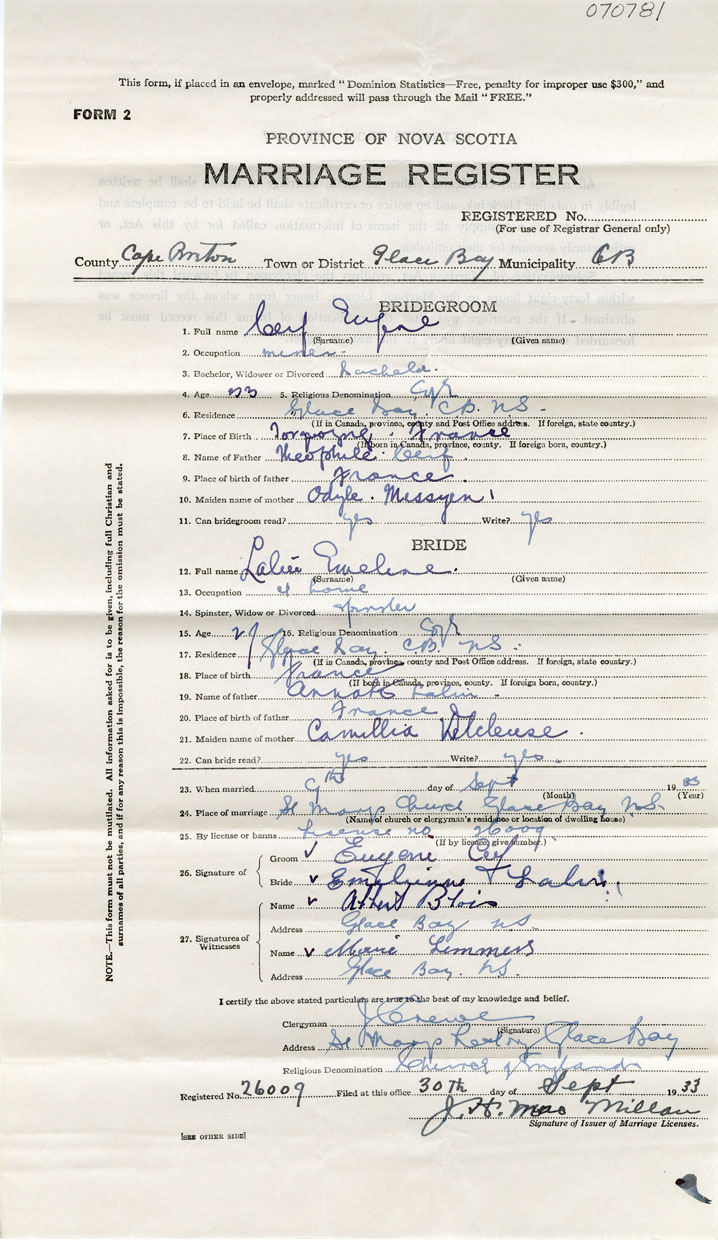 070781
This form, if placed in an envelope, marked "Dominion Statistics—Free, penalty for improper use $300," and
properly addressed will pass through the Mail "FREE."
FORM 2
PROVINCE OF NOVA SCOTIA
MARRIAGE REGISTER
REGISTERED No.
(For use of Registrar General only)
County Cape Breton Town or District Glace Bay Municipality CB
BRIDEGROOM
1. Full name Cerf Eugene
(Surname) (Given name)
2. Occupation miner
3. Bachelor, Widower or Divorced bachelor.
4. Age 5. Religious Denomination
6. Residence Glace Bay. C.B. N.S.
(If in Canada, province, county and Post Office address. If foreign, state country.)
7. Place of Birth France
(If born in Canada, province, county. If foreign born, country.)
8. Name of Father Theophile Cerf
9. Place of birth of father France.
10. Maiden name of mother Odyle. Messyen
11. Can bridegroom read? yes Write? yes
BRIDE
12. Full name Emeline.
(Surname) (Given name)
13. Occupation at home
14. Spinster, Widow or Divorced spinster
15. Age 16. Religious Denomination
17. Residence Glace Bay C.B. N.S.
(If in Canada, province, county and Post Office address. If foreign, state country.)
18. Place of birth France
(If born in Canada, province, county. If foreign born, country.)
19. Name of father
20. Place of birth of father France
21. Maiden name of mother Camillia
22. Can bride read? yes Write? yes.
23. When married 9th day of Sept 1933
(Month) (Year)
24. Place of marriage St Marys Church Glace Bay N.S.
(Name of church or clergyman's residence or location of dwelling house)
25. By license or banns License no 26009
(If by licence, give number.)
26. Signature of
Groom Eugene Cerf
Bride
27. Signatures of Witnesses
Name Albert Blois
Address Glace Bay N.S.
Name Marie Lemmens
Address Glace Bay. N.S.
I certify the above stated particulars are true to the best of my knowledge and belief.
Clergyman
(Signature)
Address St Marys Rectory Glace Bay
Religious Denomination Church of England
Registered No. 26009 Filed at this office 30Th day of Sept 1933
J. H. Mac Millan
Signature of Issuer of Marriage Licenses.
[SEE OTHER SIDE]
NOTE.—This form must not be mutilated. All information asked for is to be given, including full Christian and
surnames of all parties, and if for any reason this is impossible, the reason for the omission must be stated.